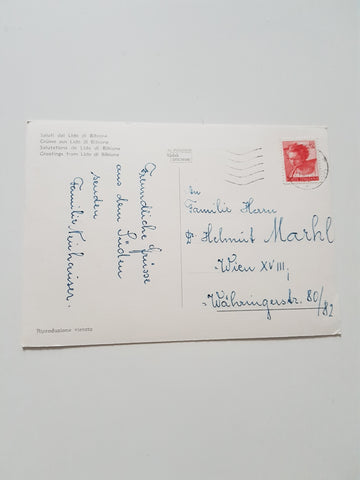 Saluti dal Lido di Bibione
Grüsse aus Lido di Bibione
Salutations de Lido di Bibione
Greetings from Lido di Bibione
Freundliche Grüsse
aus dem Süden
senden
Familie
An
Familie Herrn
Helmut Markl
Wien XVIII,
Währingerstr. 80/
82
Riproduzione vietata